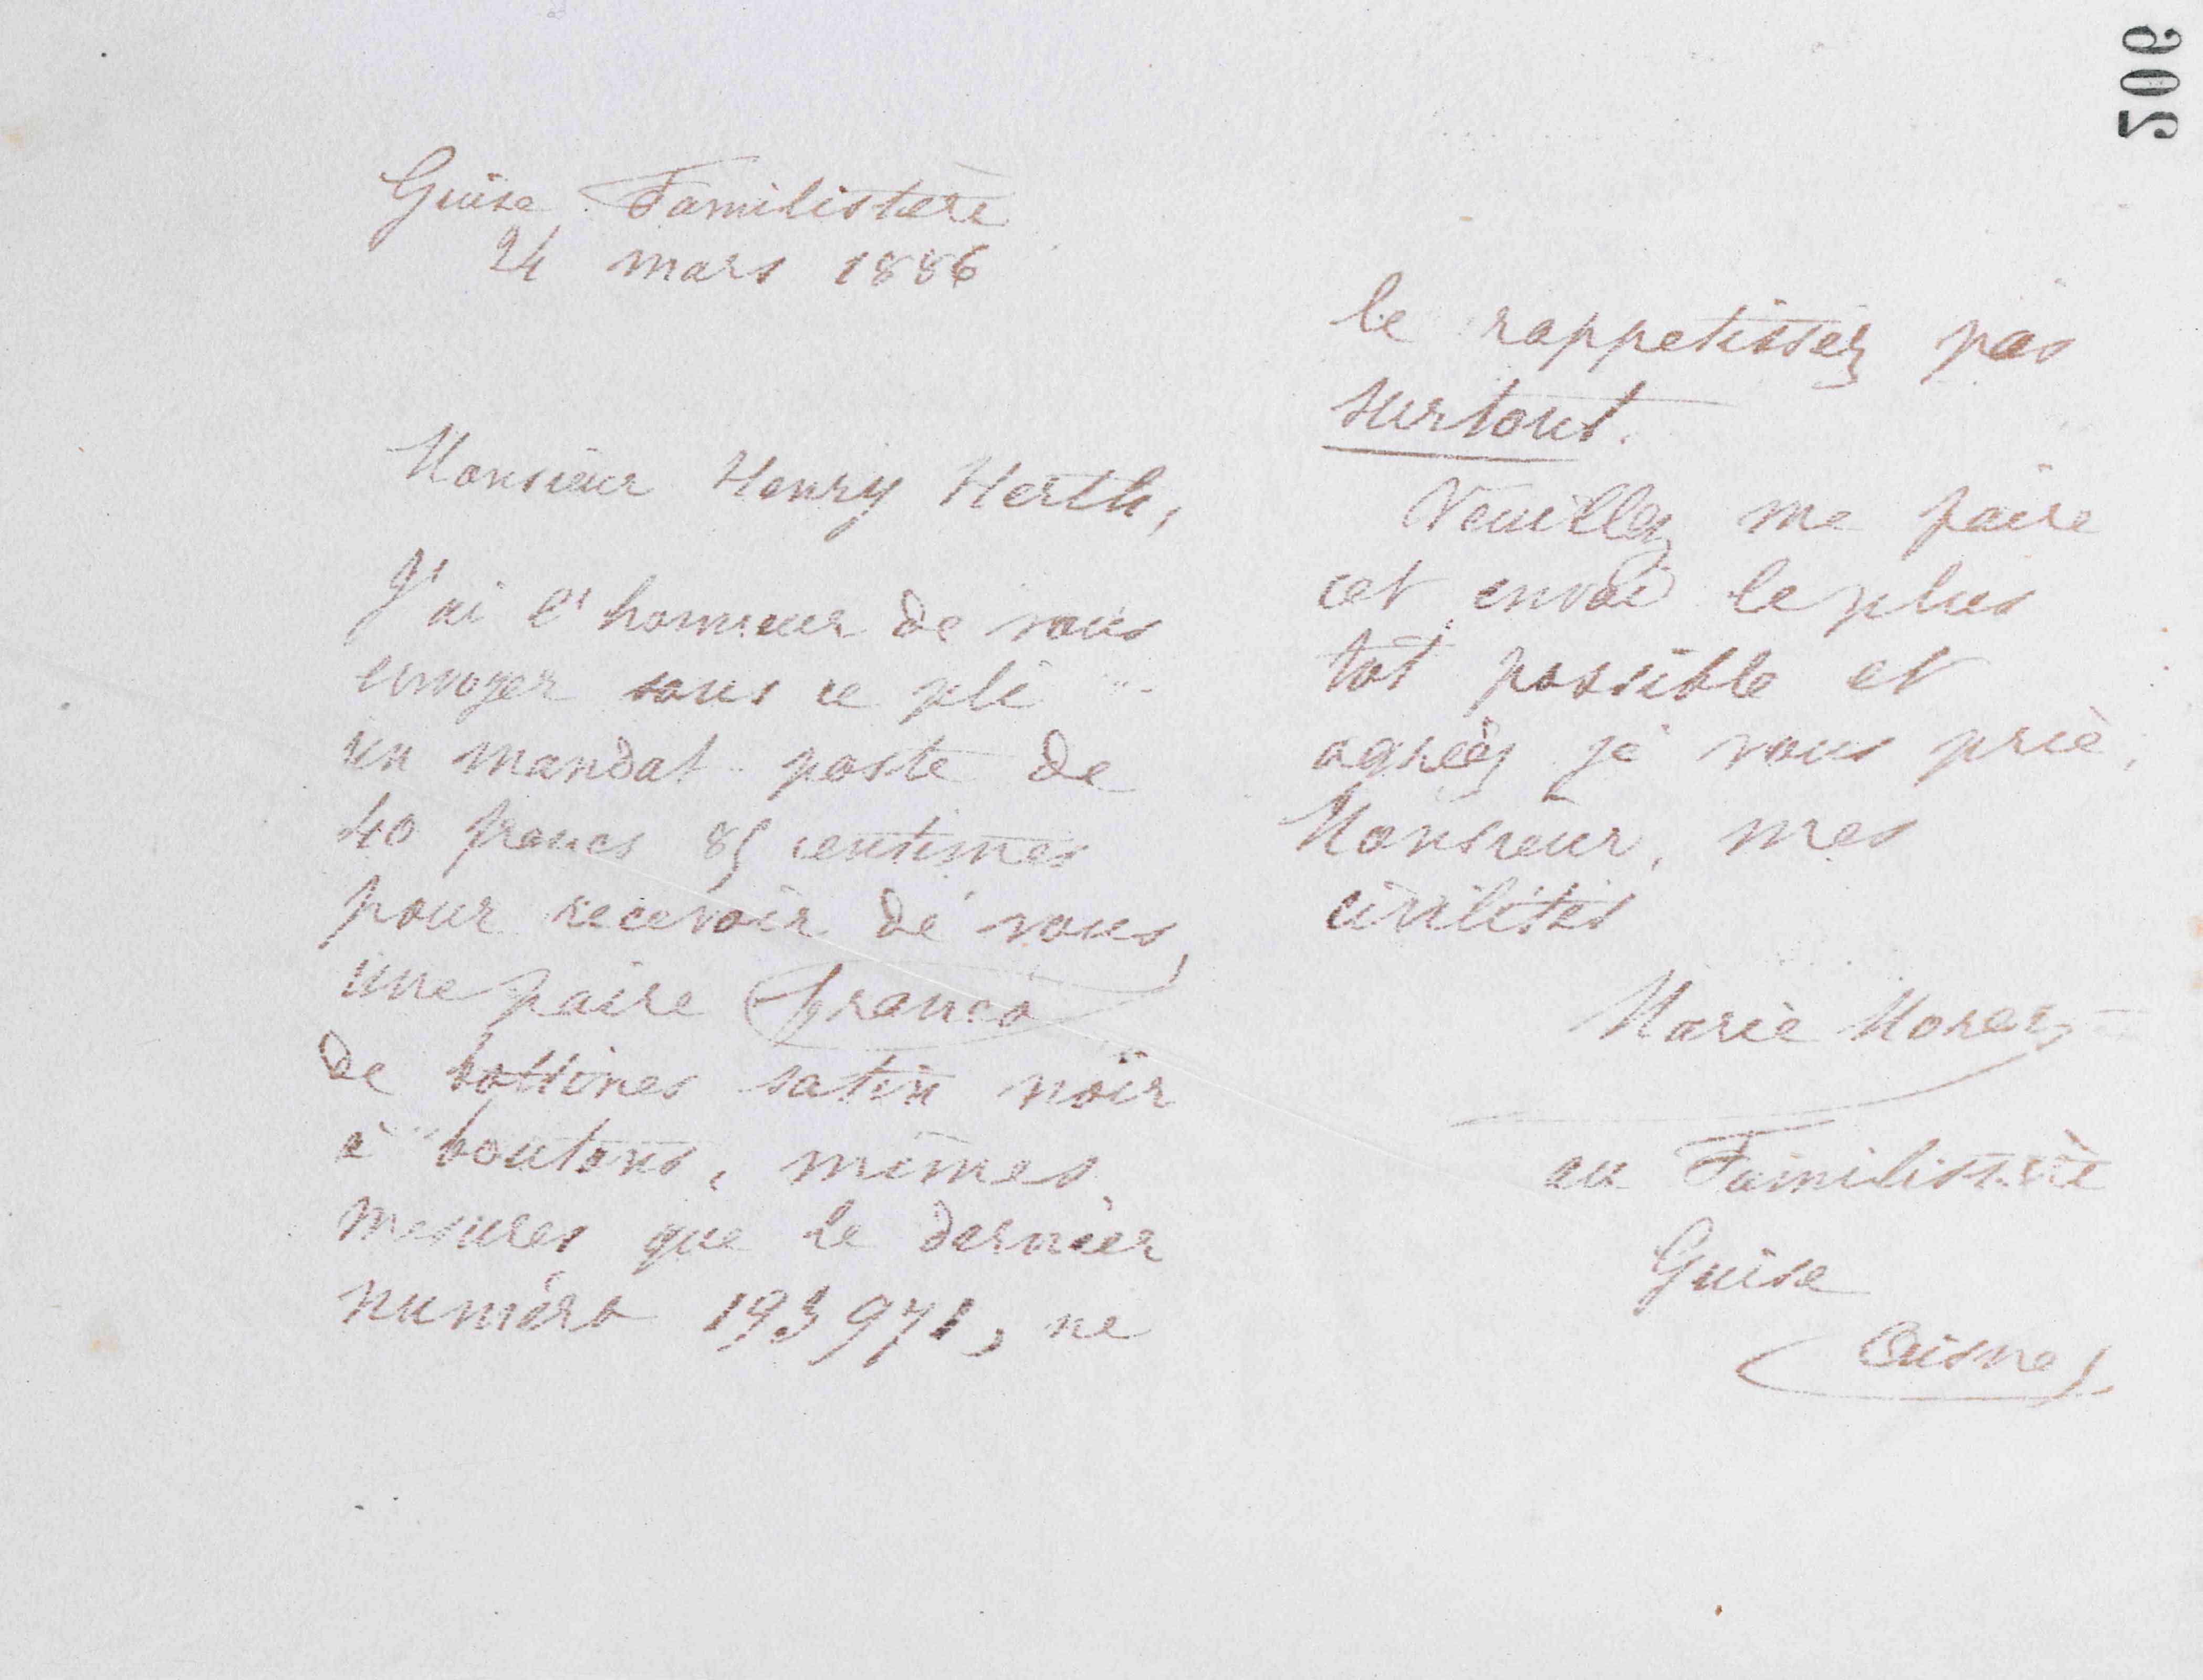 206
Guise Familistère
24 mars 1886
Monsieur Henry Herth,
J'ai l'honneur de vous
envoyer sous ce pli
un mandat poste de
40 francs 85 centimes
pour recevoir de vous,
une paire (franco)
de bottines satin noir
à boutons, mêmes
mesures que le dernier
numéro 193971, ne
le rappetissez pas
surtout.
Veuillez me faire
cet envoi le plus
tôt possible et
agréez je vous prie,
Monsieur, mes
civilités
Marie Moret
au Familistère
Guise
(Aisne)